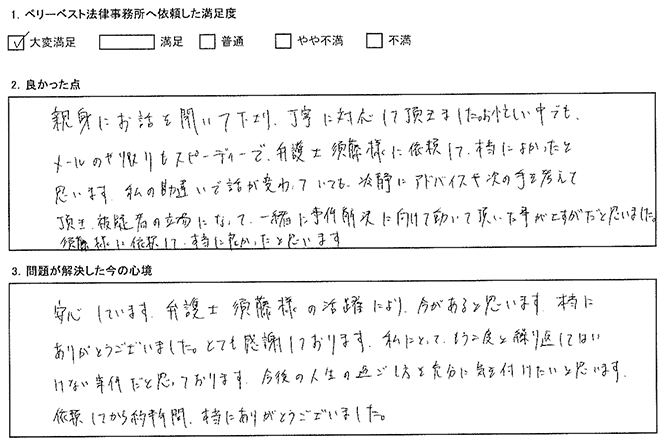 1. ベリーベスト法律事務所へ依頼した満足度
大変満足 満足 普通 やや不満 不満
2. 良かった点
親身にお話を聞いて下さり、丁寧に対応して頂きました。お忙しい中でも、
メールのやり取りもスピーディーで、弁護士 須藤様に依頼して、本当によかったと
思います。私の勘違いで話が変わっていても、冷静にアドバイスや次の手を考えて
頂き、被疑者の立場になって、一緒に事件解決に向けて動いて頂いた事が上すがだと思いました。
須藤様に依頼して、本当に良かったと思います
3. 問題が解決した今の心境
安心しています。弁護士 須藤様の活躍により、今があると思います。本当に
ありがとうございました。とても感謝しております。私にとって、もう二度と繰り返してはい
けない事件だと思っております。今後の人生の過ごし方を充分に気を付けたいと思います。
依頼してから約半年間、本当にありがとうございました。